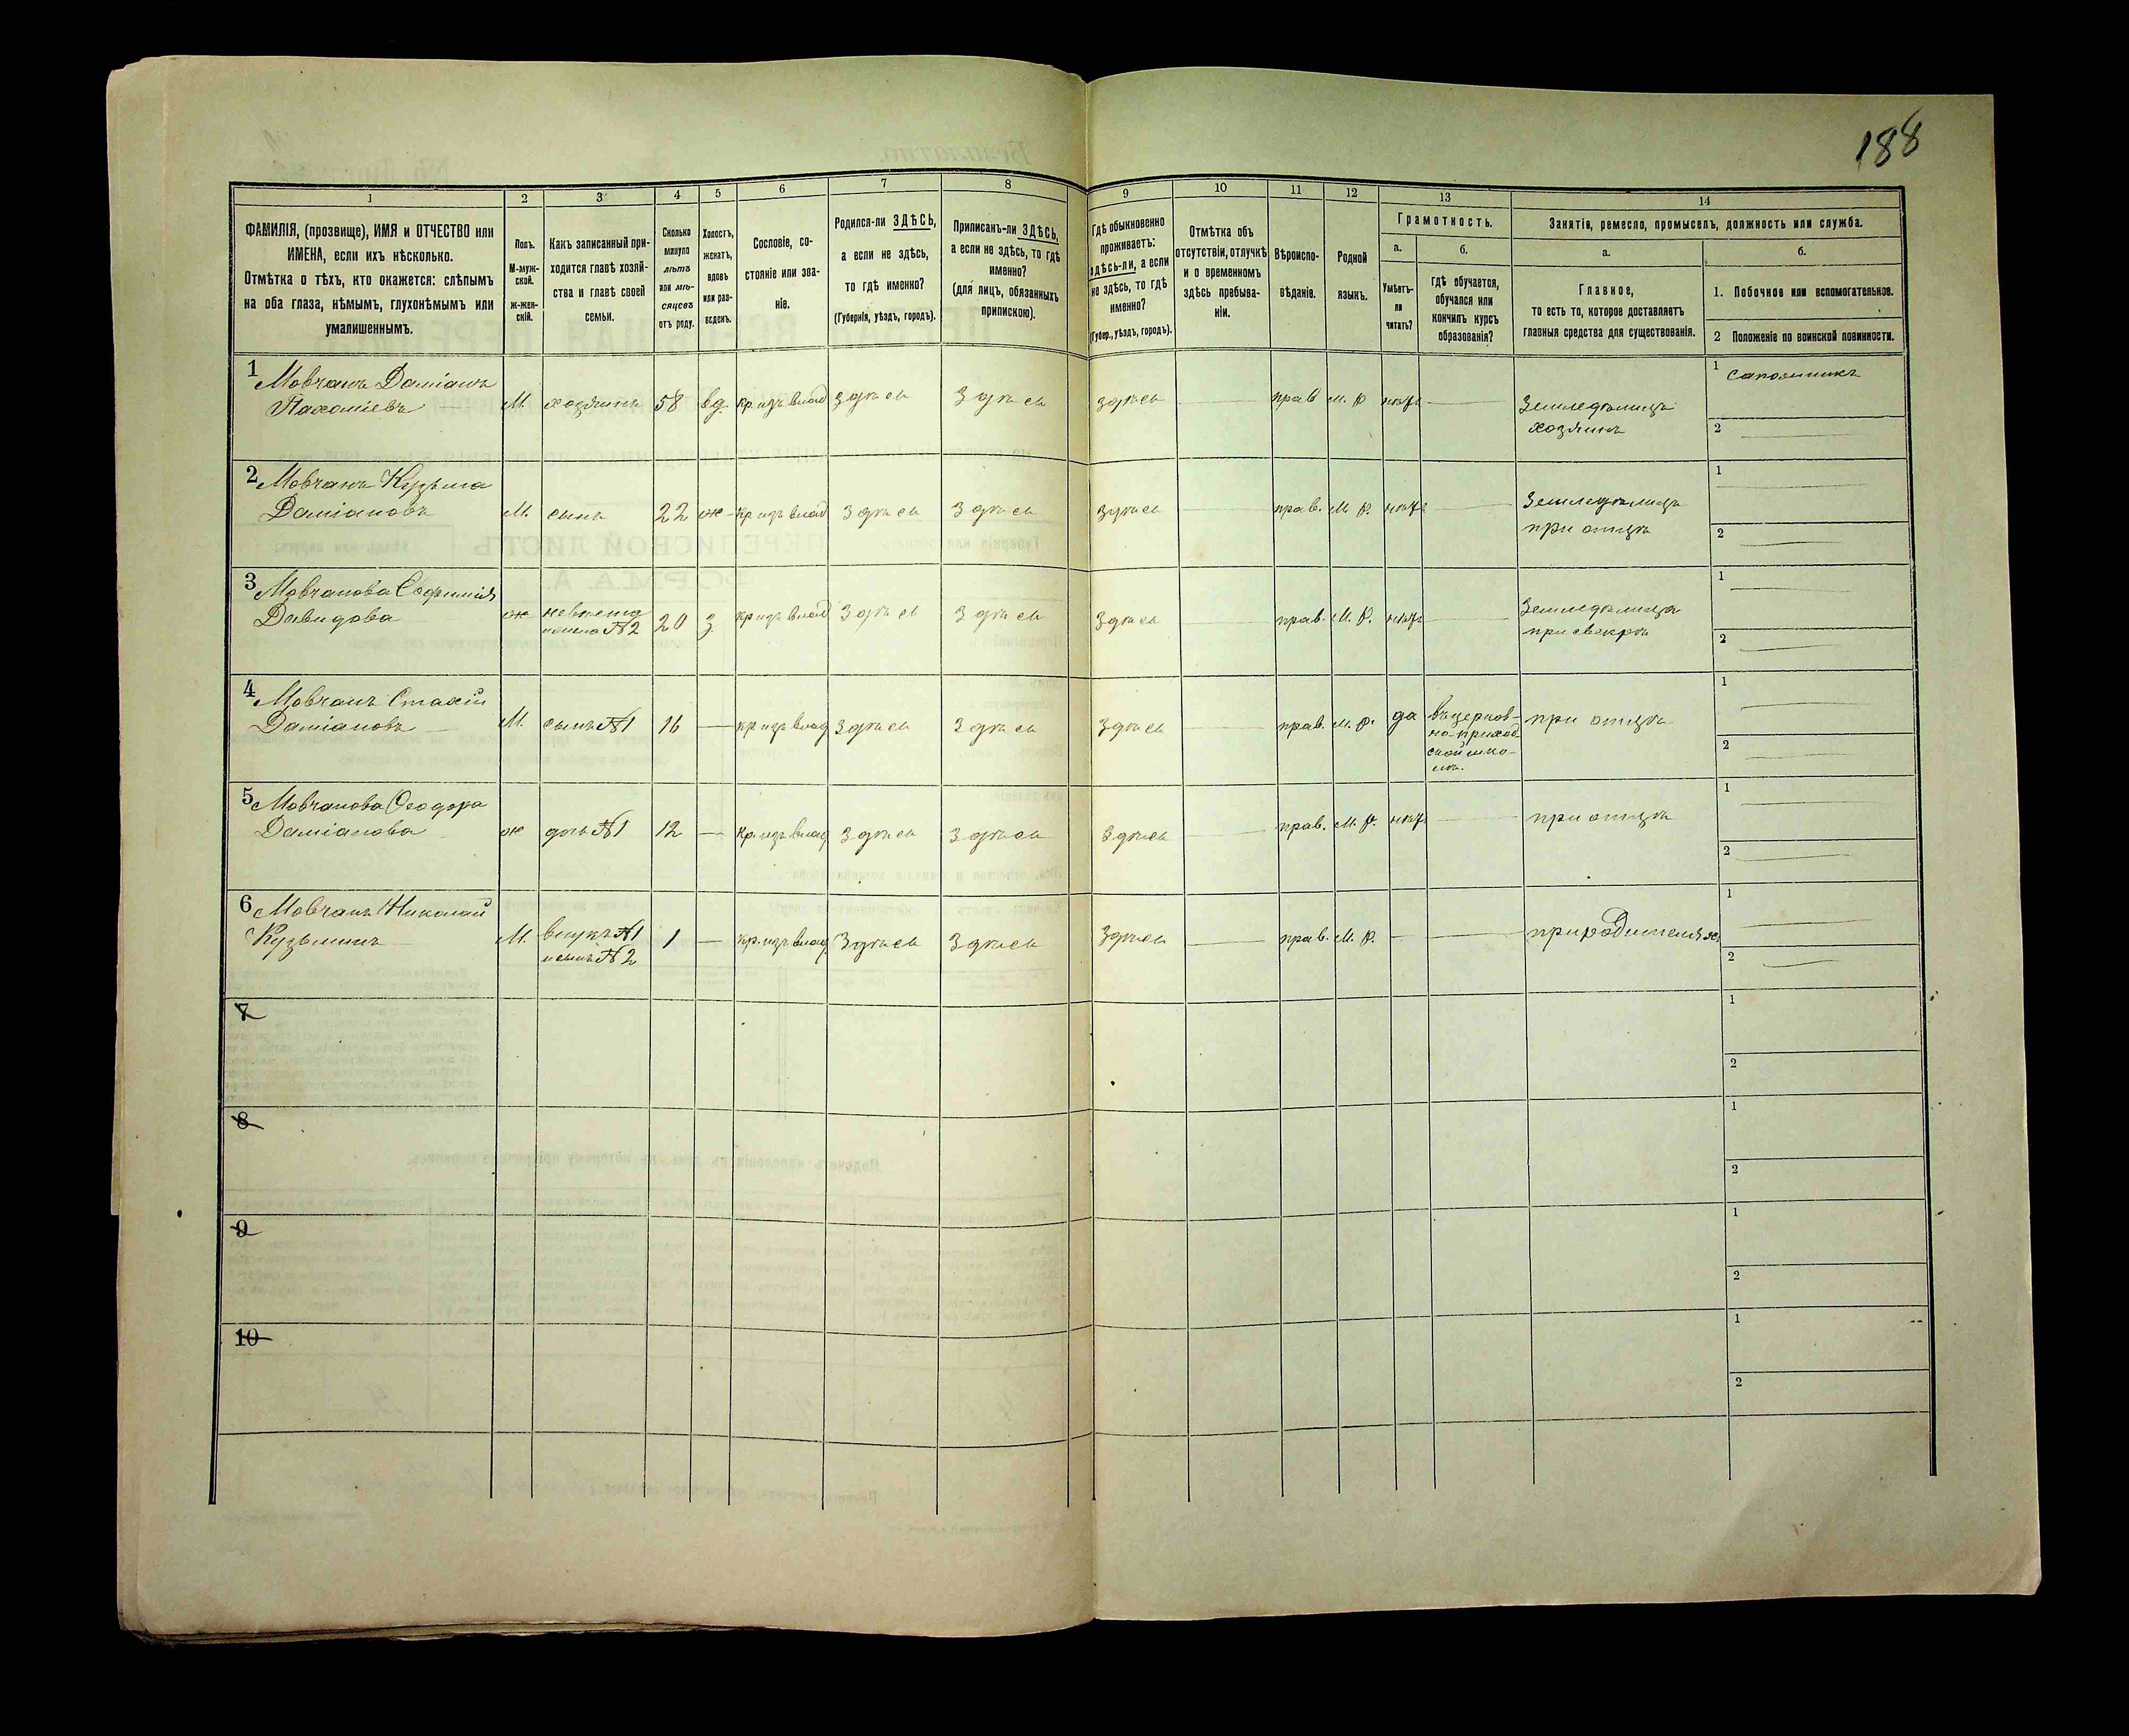 188
1
2
3
4
5
6
7
8
9
10
11
12
13
14
ФАМИЛІЯ, (прозвище), ИМЯ и ОТЧЕСТВО или
ИМЕНА, если ихъ нѣсколько.
Отмѣтка о тѣхъ, кто окажется: слѣпымъ
на оба глаза, нѣмымъ, глухонѣмымъ или
умалишеннымъ.
Полъ.
М-муж-
ской.
ж-жен-
скій.
Какъ записанный при-
ходится главѣ хозяй-
ства и главѣ своей
семьи.
Сколько
минуло
лѣтъ
или мѣ-
сяцевъ
отъ роду.
Холостъ,
женатъ,
вдовъ
или раз-
веденъ.
Сословіе, со-
стояніе или зва-
ніе.
Родился-ли ЗДѢСЬ,
а если не здѣсь,
то гдѣ именно?
(Губернія, уѣздъ, городъ).
Приписанъ-ли ЗДѢСЬ,
а если не здѣсь, то гдѣ
именно?
(для лицъ, обязанныхъ
припискою).
Гдѣ обыкновенно
проживаетъ:
здѣсь-ли, а если
не здѣсь, то гдѣ
именно?
(Губер., уѣздъ, городъ).
Отмѣтка объ
отсутствіи, отлучкѣ
и о временномъ
здѣсь пребыва-
ніи.
Вѣроиспо-
вѣданіе.
Родной
языкъ.
Грамотность.
а.
б.
Умѣетъ-
ли
читать?
Гдѣ обучается,
обучался или
кончилъ курсъ
образованія?
Занятіе, ремесло, промыселъ, должность или служба.
а.
б.
Главное,
то есть то, которое доставляетъ
главныя средства для существованія.
1. Побочное или вспомогательное.
2 Положеніе по воинской повинности.
1 Мовчанъ Даміанъ
Пахоміевъ
М. хозяинъ 58 вд. кр. изъ влад здѣсь здѣсь здѣсь прав м. р нѣтъ
Земледѣлецъ
хозяинъ
1 Сапожникъ
2
2 Мовчанъ Кузьма
Даміановъ
М. сынъ 22 ж кр изъ влад здѣсь здѣсь здѣсь прав. М. р. нѣтъ
Земледѣлецъ
при отцѣ
1
2
3 Мовчанова Евфимія
Давидова
ж невѣстка
жена №2
20 з. кр изъ влад здѣсь здѣсь здѣсь прав. М. р. нѣтъ
Земледѣлица
при свекрѣ
1
2
4 Мовчанъ Стахій
Даміановъ
М. сынъ №1 16 кр изъ влад здѣсь здѣсь здѣсь прав. М. р. да
въ церков-
но-приход
ской шко-
лѣ.
при отцѣ
1
2
5 Мовчанова Феодора
Даміанова
ж дочь №1 12 кр. изъ влад здѣсь здѣсь здѣсь прав. М. р. нѣтъ
при отцѣ
1
2
6 Мовчанъ Николай
Кузьминъ
М. внукъ №1
и сынъ №2
1 кр. изъ влад здѣсь здѣсь здѣсь прав. М. р.
при родителяхъ
1
2
7
1
2
8
1
2
9
1
2
10
1
2